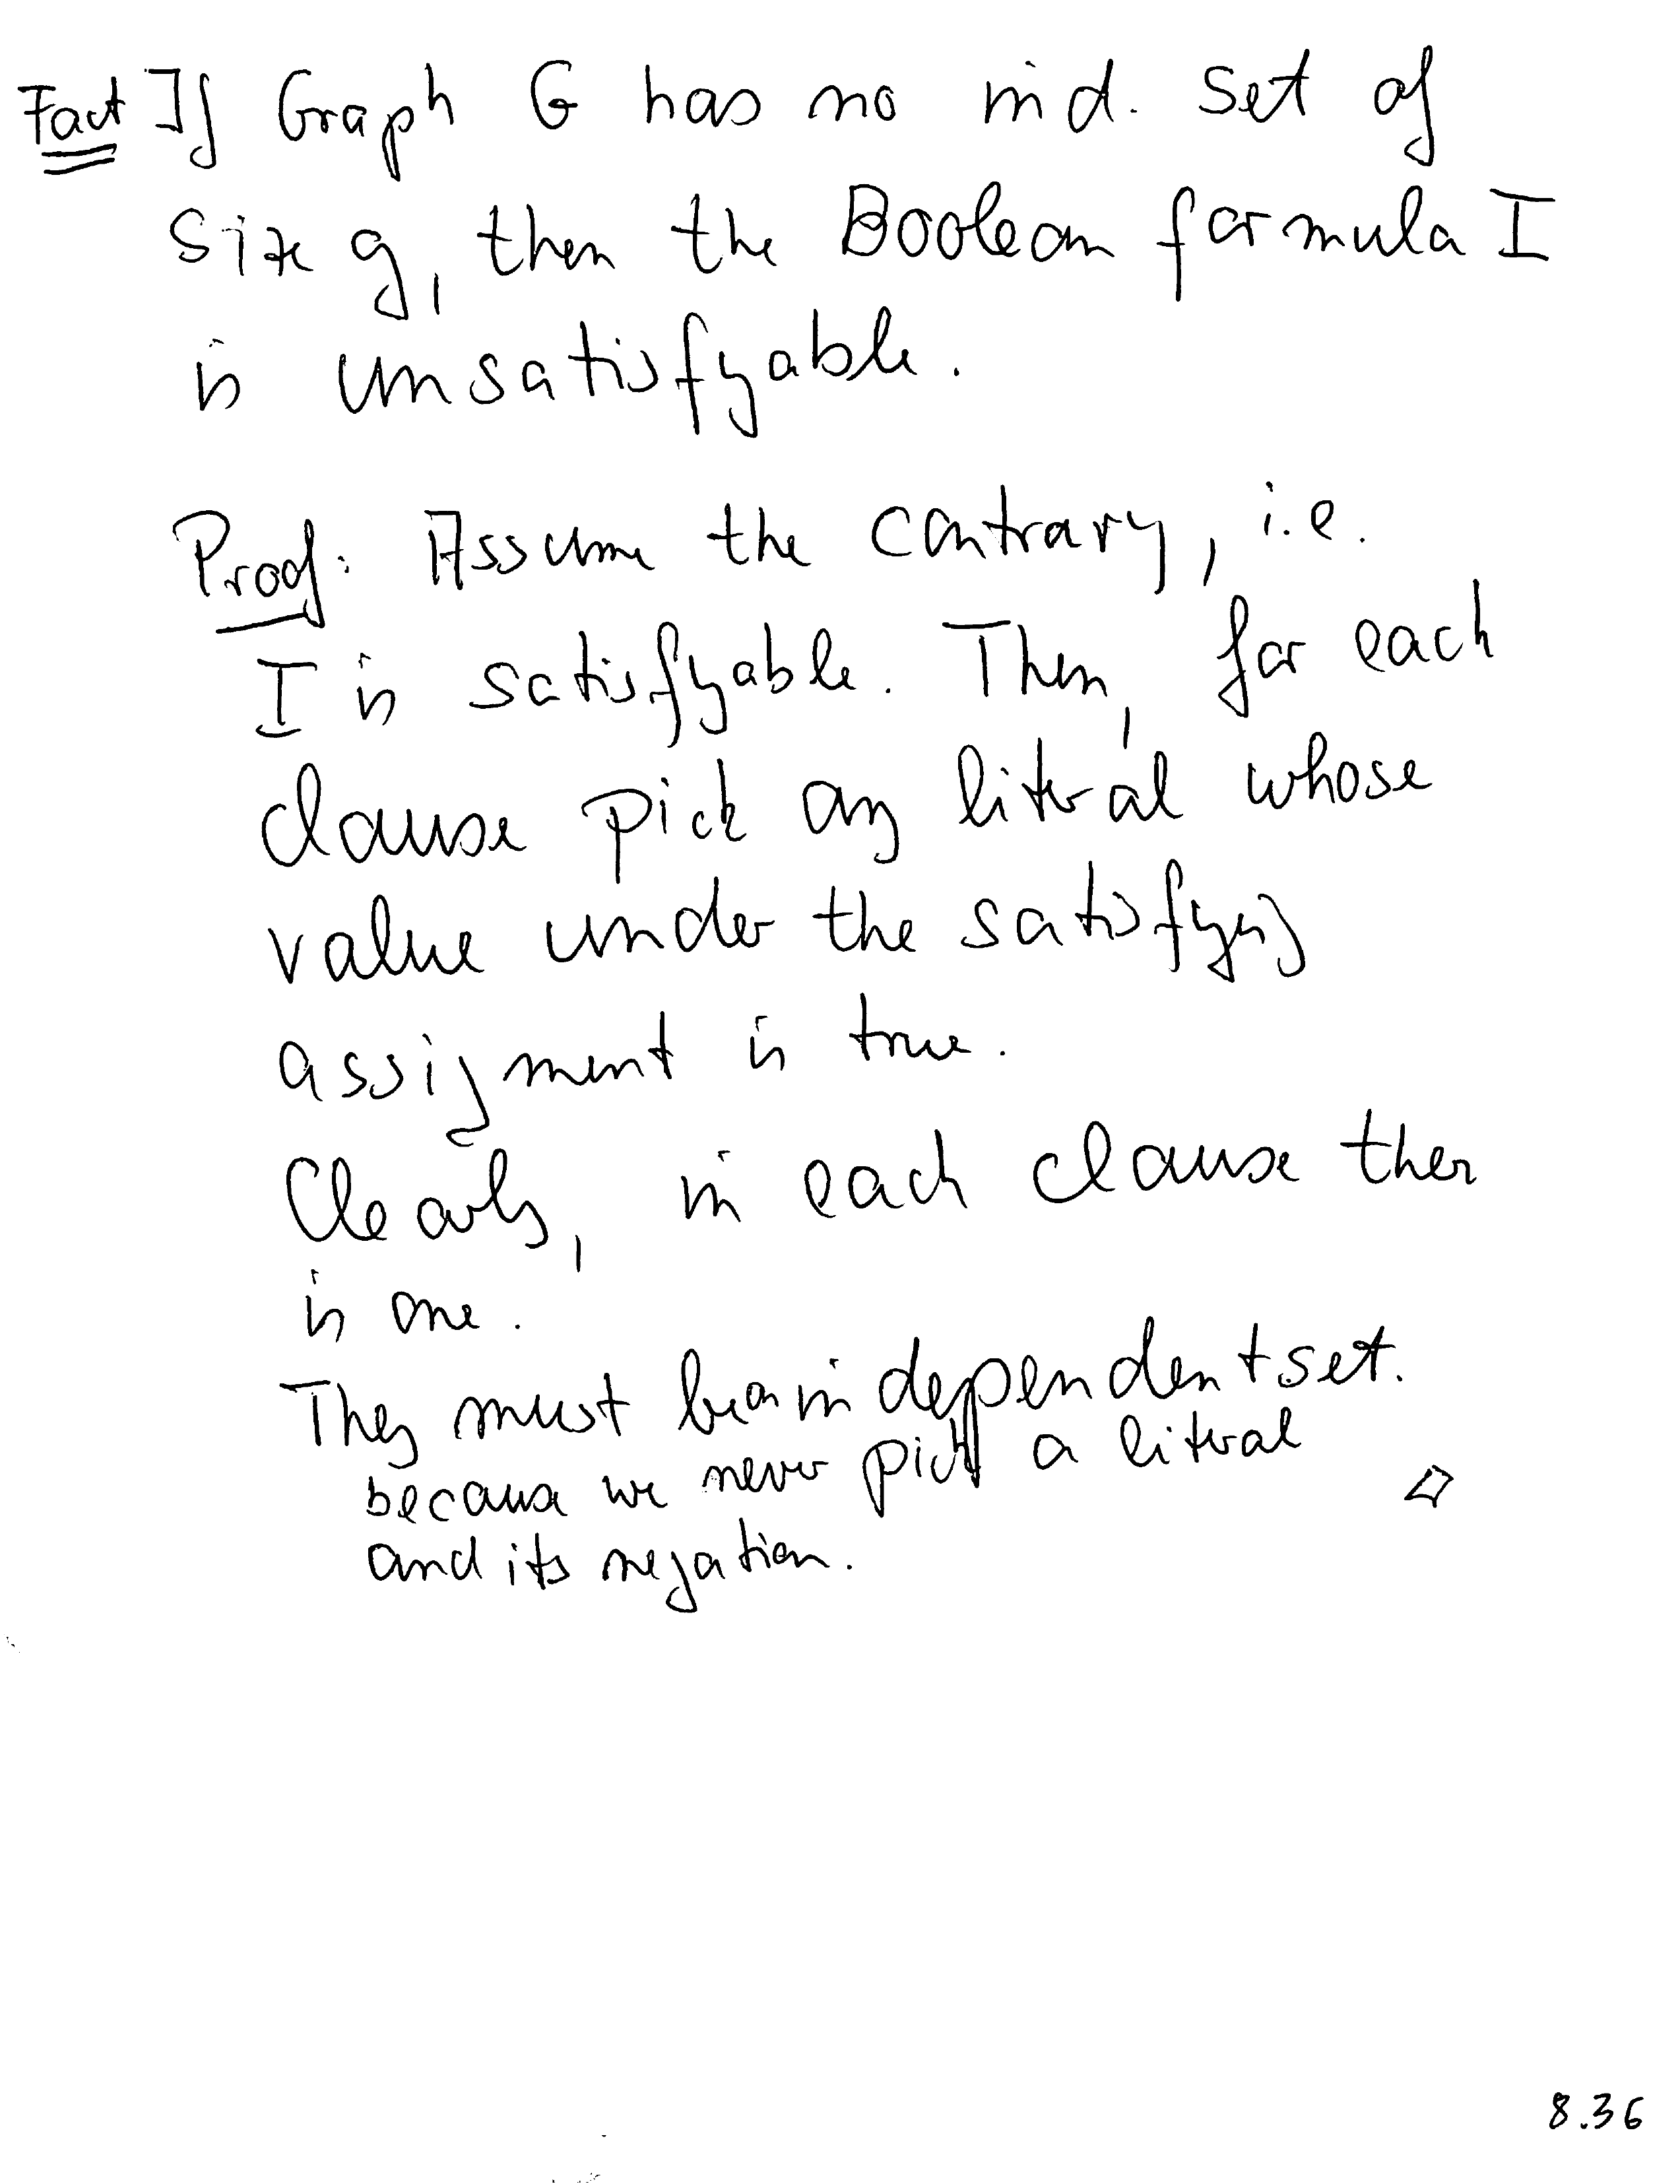 Fact If Graph G has no ind. set of
size g, then the Boolean formula I
is unsatisfyable.
Proof: Assume the contrary, i.e.
I is satisfyable. Then, for each
clause pick any literal whose
value under the satisfying
assigment is true.
Clearly, in each clause ther
is one.
They must be an independent set.
because we never pick a literal
and its negation.
8.36